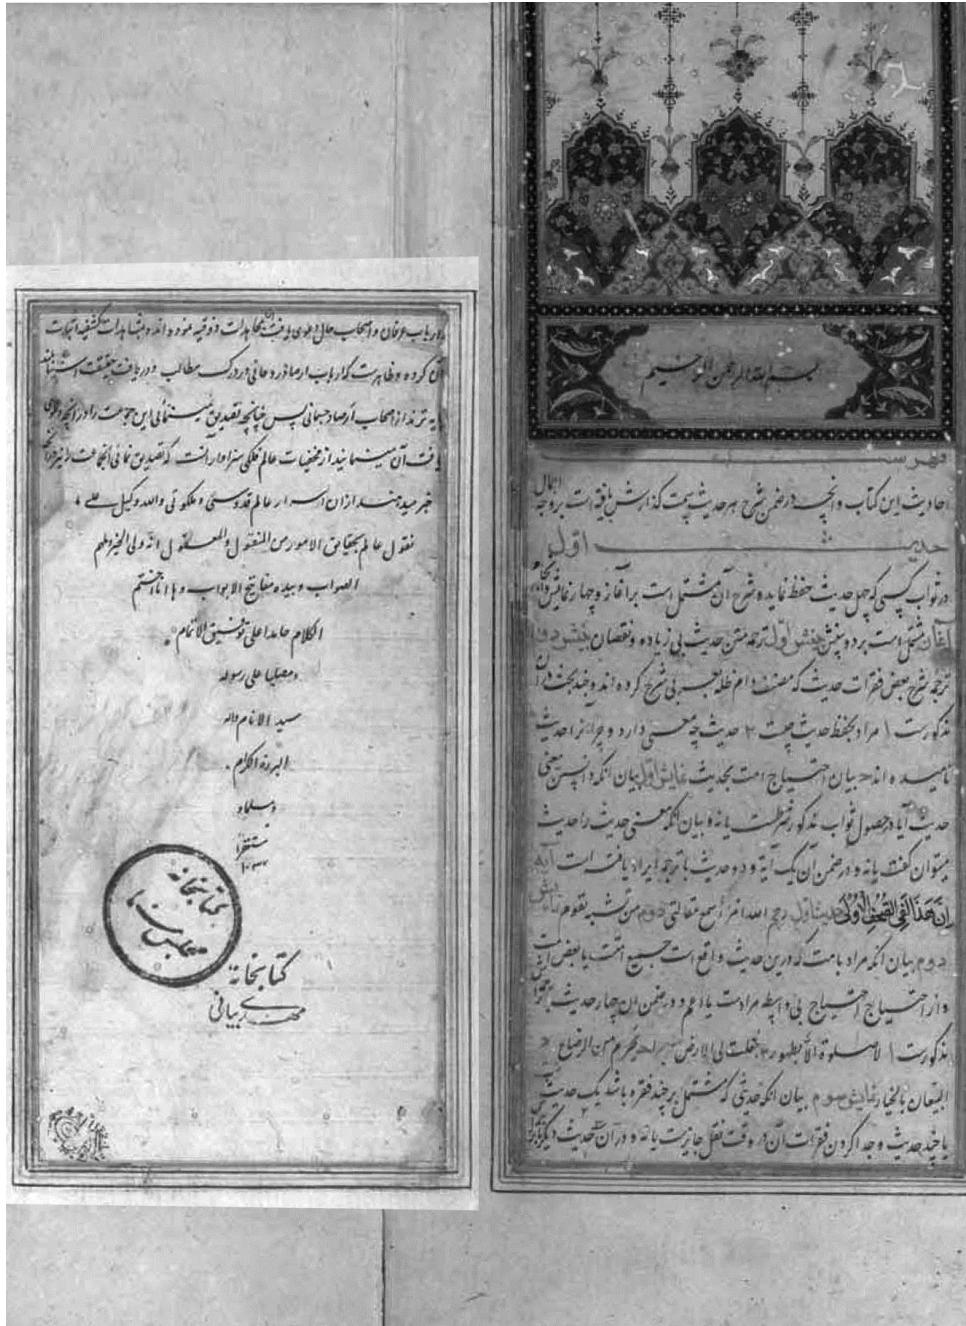 بسم الله الرحمن الرحیم
فهرست
احادیث این کتاب و آنچه در ضمن شرح هر حدیث سمت گذارش یافته است بر وجه اجمال
حدیث اول
در ثواب کسی که چهل حدیث حفظ نماید و شرح آن مشتمل است بر آغاز و چهار نمایش و انجام
آغاز مشتمل است بر دو بخش بخش اول ترجمه متن حدیث بی زیاده و نقصان بخش دوم
ترجمه شرح بعض فقرات حدیث که مصنف دام ظله بعربی شرح کرده اند و چند بحث در آن
مذکورست ۱ مراد بحفظ حدیث چیست ۲ حدیث چه معنی دارد و چرا انرا حدیث
نامیده اند بیان احتیاج امت بحدیث نمایش اول بیان انکه دانستن معنی
حدیث آیا در حصول ثواب مذکور شرطست یا نه و بیان انکه معنی حدیث را حدیث
میتوان گفت یا نه و در ضمن آن یک آیه و دو حدیث با ترجمه ایراد یافته است آیه
ان هذا لفی الصحف الاولی حدیث اول رحم الله امرأ سمع مقالتی دوم من تشبه بقوم نمایش
دوم بیان انکه مراد بامت که درین حدیث واقع است جمیع امتست یا بعض امت
و از احتیاج احتیاج بی واسطه مرادست یا اعم و در ضمن ان چهار حدیث
مذکورست ۱ لا صلوة الا بطهور ۲ جعلت لی الارض مسجدا یحرم من الرضاع
البیعان بالخیار نمایش سوم بیان انکه حدیثی که مشتمل بر چند فقره باشد یک حدیث
یا چند حدیث و جدا کردن فقرات آن در وقت نقل جایزست یا نه و در آن حدیث دیگر
ارباب عرفان و اصحاب حال دعوی یافت بمجاهدات ذوقیه نموده اند و بمشاهدات کشفیه اثبات
آن کرده و ظاهرست که ارباب ارصاد روحانی در درک مطالب و دریافت حقیقت
پایه ترند از اصحاب ارصاد جسمانی پس چنانچه تصدیق مینمائی این جماعت را در آنچه دعوی
یافت آن مینمایند از مخفیات عالم فلکی سزاوار آنست که تصدیق نمائی انجماعت را نیز در آنچه
خبر میدهند از ان اسرار عالم قدوسی و ملکوتی والله وکیل علی
نقول عالم بحقایق الامور من المنقول والمعقول انه ولی الخیر وملهم
الصواب وبیده مفاتیح الابواب وها انا اختم
الکلام حامدا علی توفیق الاتمام
ومصلیا علی رسوله
سید الانام واله
البررة الکرام
ومسلما
مستغفرا
کتابخانه
مجلس سنا
کتابخانه
مهدی بیانی